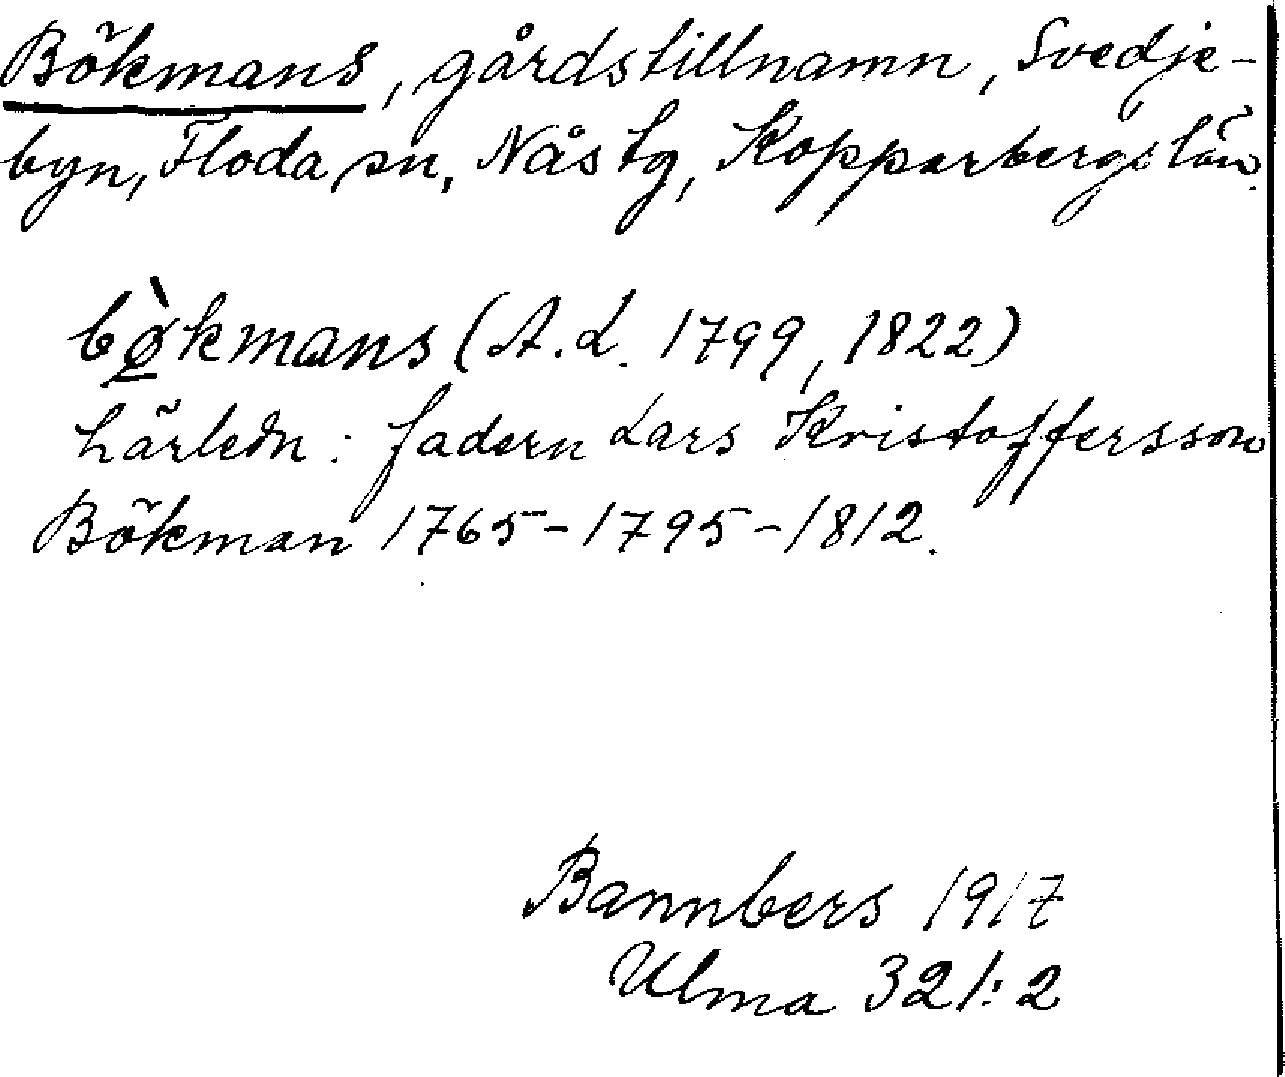 Bökmans, gårdstillnamn, Svedje-
byn, Floda sn, Nås tg, Kopparbergs län.
bø̀kmans (A.L. 1799, 1822)
härledn: fadern Lars Kristoffersson
Bökman 1765-1795-1812.
Bannbers 1917
Ulma 321:2